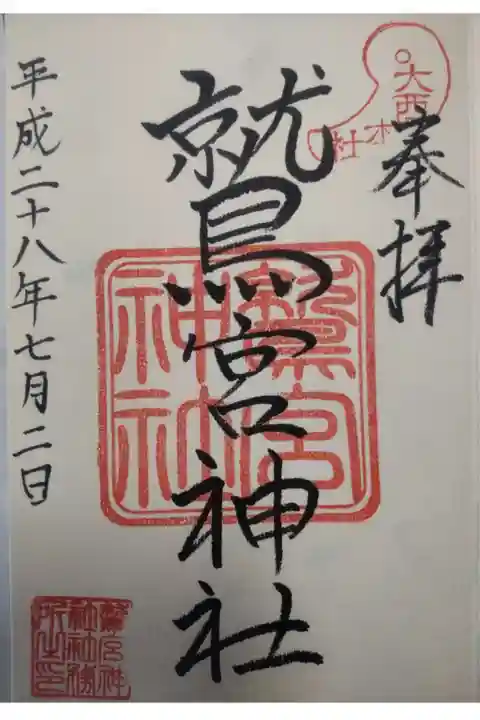 奉拝
鷲宮神社
平成二十八年七月二日
鷲宮神社